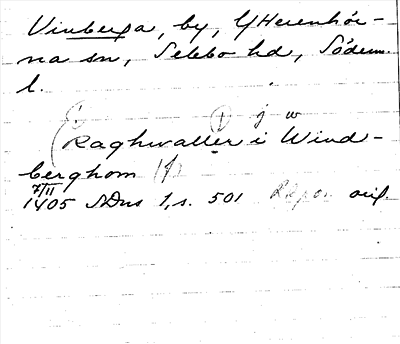 Vinberga, by, Ytterenhör-
na sn, Selebo hd, Söderm.
l.
j w
Raghwaller i Wind-
berghom
7/11
1405 SDns 1, s. 501 Rapp. orig.